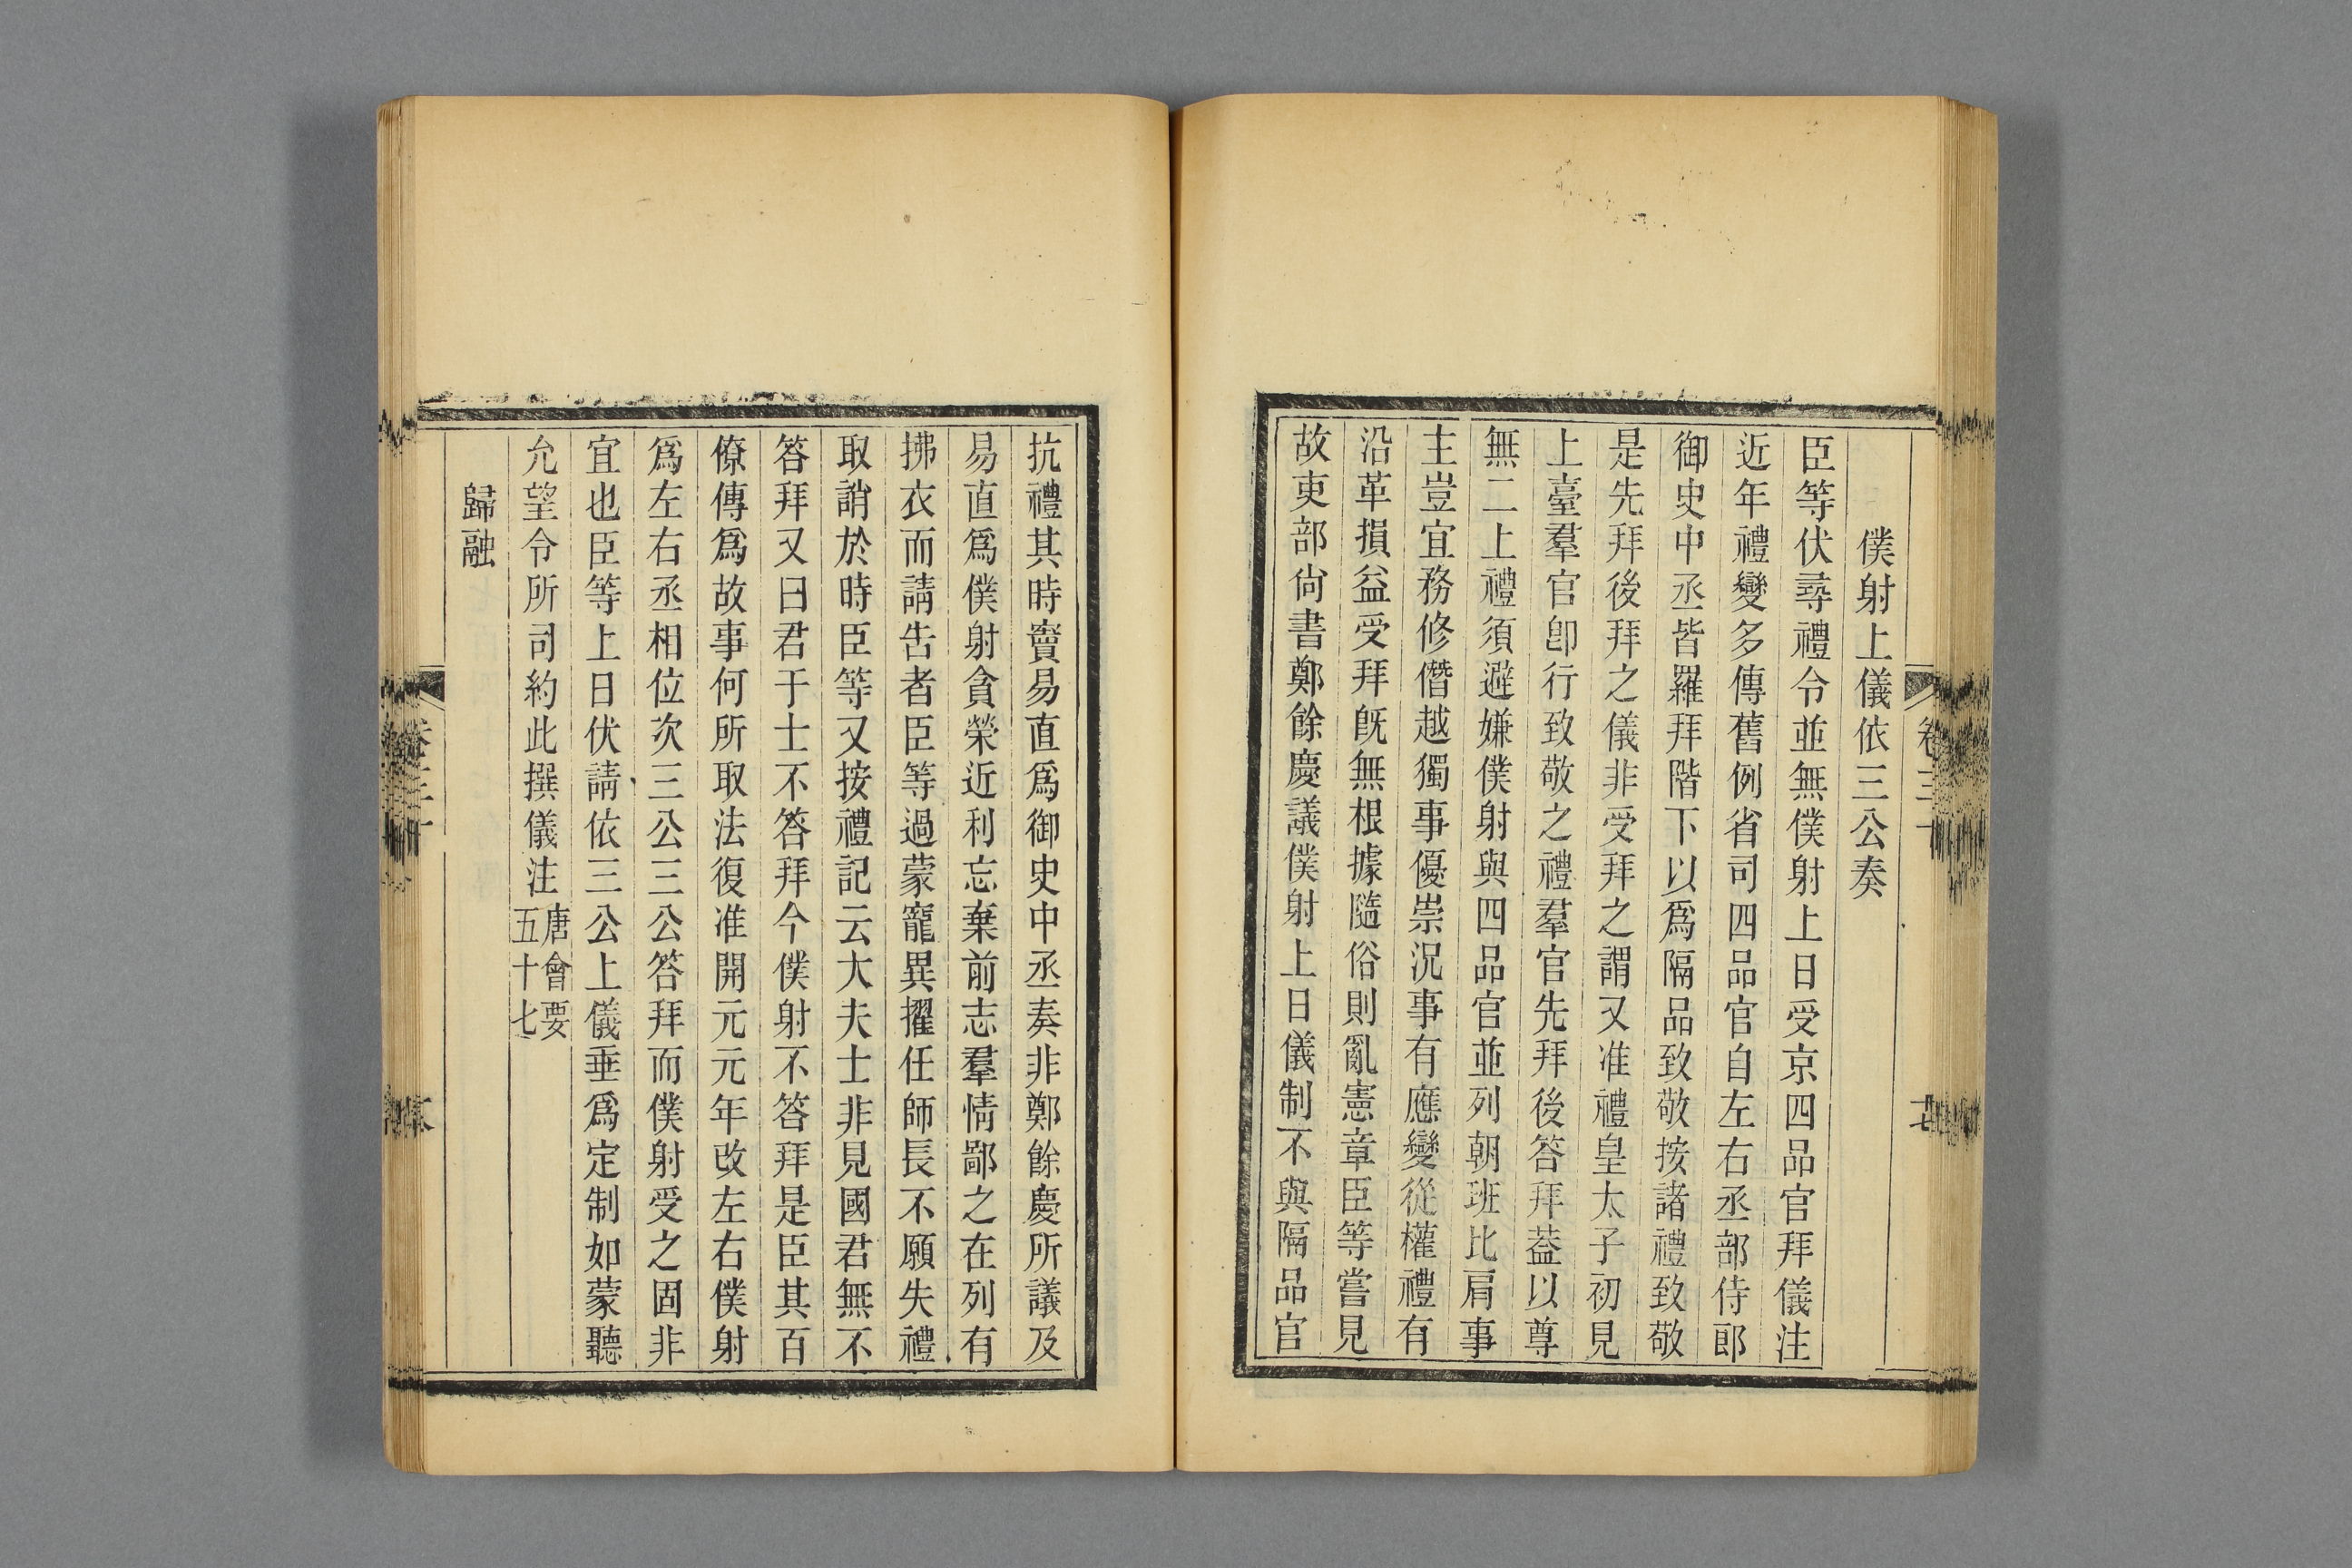 僕射上儀依三公奏
臣等伏尋禮令並無僕射上日受京四品官拜儀注
近年禮變多傳舊例省司四品官自左右丞部侍郎
御史中丞皆羅拜階下以爲隔品致敬按諸禮致敬
是先拜後拜之儀非受拜之謂又准禮皇太子初見
上臺羣官卽行致敬之禮羣官先拜後答拜葢以尊
無二上禮須避嫌僕射與四品官並列朝班比肩事
主豈宜務修僭越獨事優崇況事有應變從權禮有
沿革損益受拜旣無根據隨俗則亂憲章臣等嘗見
故吏部尙書鄭餘慶議僕射上日儀制不與隔品官
抗禮其時竇易直爲御史中丞奏非鄭餘慶所議及
易直爲僕射貪榮近利忘棄前志羣情鄙之在列有
拂衣而請告者臣等過蒙寵異擢任師長不願失禮
取誚於時臣等又按禮記云大夫士非見國君無不
答拜又曰君于士不答拜今僕射不答拜是臣其百
僚傳爲故事何所取法復准開元元年改左右僕射
爲左右丞相位次三公三公答拜而僕射受之固非
宜也臣等上日伏請依三公上儀垂爲定制如蒙聽
允望令所司約此撰儀注唐會要五十七
歸融